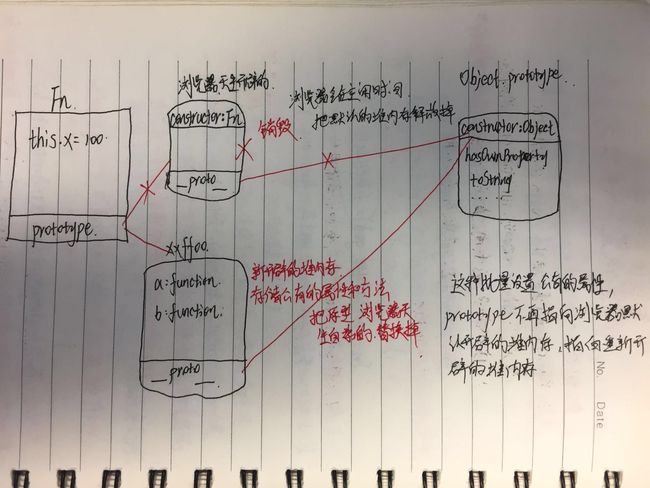 Fn
this.x=100.
prototype.
浏览器天生开辟的
constructor:Fn
__proto__
销毁
浏览器会在空闲时间
把默认的堆内存释放掉
Object.prototype
constructor:Object
hasOwnProperty
toString
......
xxff00
a:function.
b:function.
__proto__
新开辟的堆内存
存储公有的属性和方法
把原型 浏览器天
生自带的.替换掉
这种批量设置公有的属性,
prototype不再指向浏览器默
认开辟的堆内存,指向重新开
辟的堆内存
No.
Date